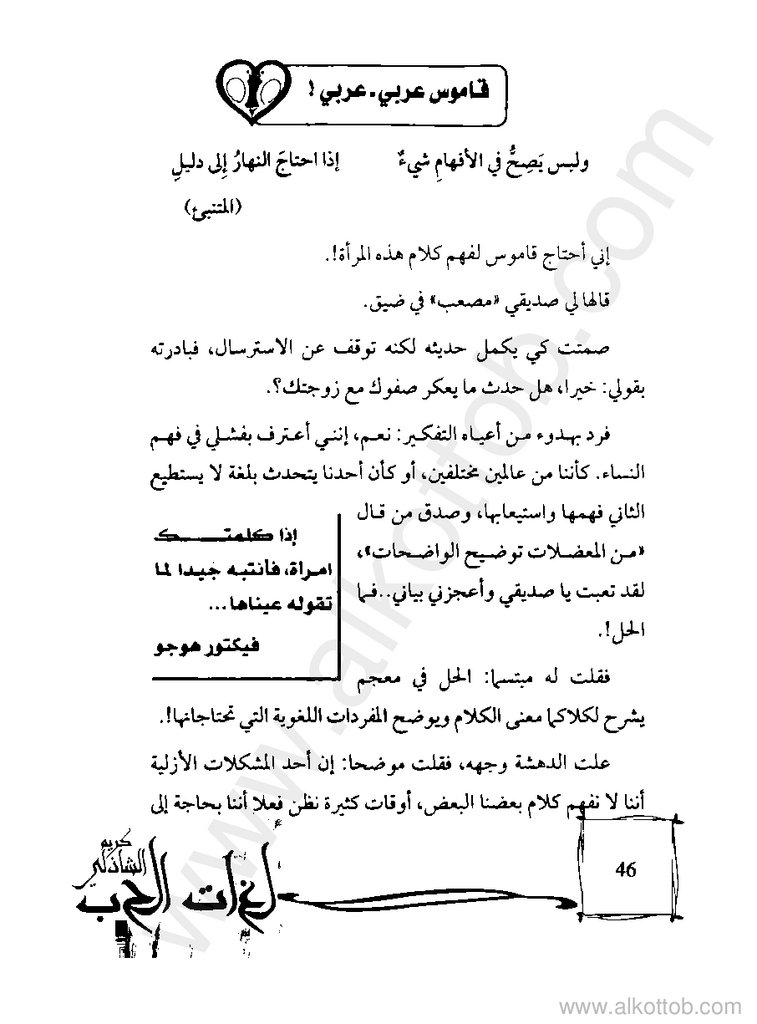 قاموس عربي - عربي !
وليس يَصِحُّ في الأفهامِ شيءٌ إذا احتاجَ النهارُ إلى دليلِ
(المتنبئ)
إني أحتاج قاموس لفهم كلام هذه المرأة!.
قالها لي صديقي «مصعب» في ضيق.
صمتت كي يكمل حديثه لكنه توقف عن الاسترسال، فبادرته
بقولي: خيرا، هل حدث ما يعكر صفوك مع زوجتك؟.
فرد بهدوء من أعياه التفكير: نعم، إنني أعترف بفشلي في فهم
النساء. كأننا من عالمين مختلفين، أو كأن أحدنا يتحدث بلغة لا يستطيع
الثاني فهمها واستيعابها، وصدق من قال
«من المعضلات توضيح الواضحات»،
لقد تعبت يا صديقي وأعجزني بياني..فما
الحل!.
إذا كلمتك
امرأة، فانتبه جيدا لما
تقوله عيناها...
فيكتور هوجو
فقلت له مبتسما: الحل في معجم
يشرح لكلاكما معنى الكلام ويوضح المفردات اللغوية التي تحتاجانها!.
علت الدهشة وجهه، فقلت موضحا: إن أحد المشكلات الأزلية
أننا لا نفهم كلام بعضنا البعض، أوقات كثيرة نظن فعلا أننا بحاجة إلى
46
كريم
الشاذلي
لغات الحب
www.alkottob.com
www.alkottob.com